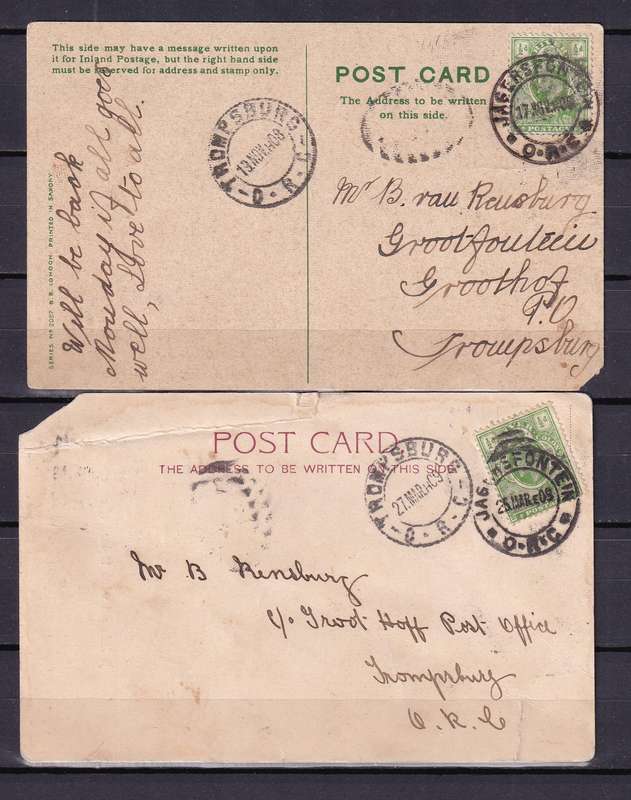 This side may have a message written upon
it for Inland Postage, but the right hand side
must be reserved for address and stamp only.
POST CARD
The Address to be written
on this side.
½d
POSTAGE
JAGERSFONTEIN
17 NOV 08
O.R.C
TROMPSBURG
19 NOV 08
O.R.C
Will be back
Monday if all goes
well, Love to all.
SERIES No 2027 B.B. LONDON. PRINTED IN SAXONY
Mr B. van Rensburg
Grootfontein
Groothof
P.O
Trompsburg
POST CARD
THE ADDRESS TO BE WRITTEN ON THIS SIDE
TROMPSBURG
27 MAR 09
O.R.C
½d
JAGERSFONTEIN
25 MAR 09
O.R.C
Mr B Rensburg
c/o Groot Hoff Post Office
Trompsburg
O.R.C